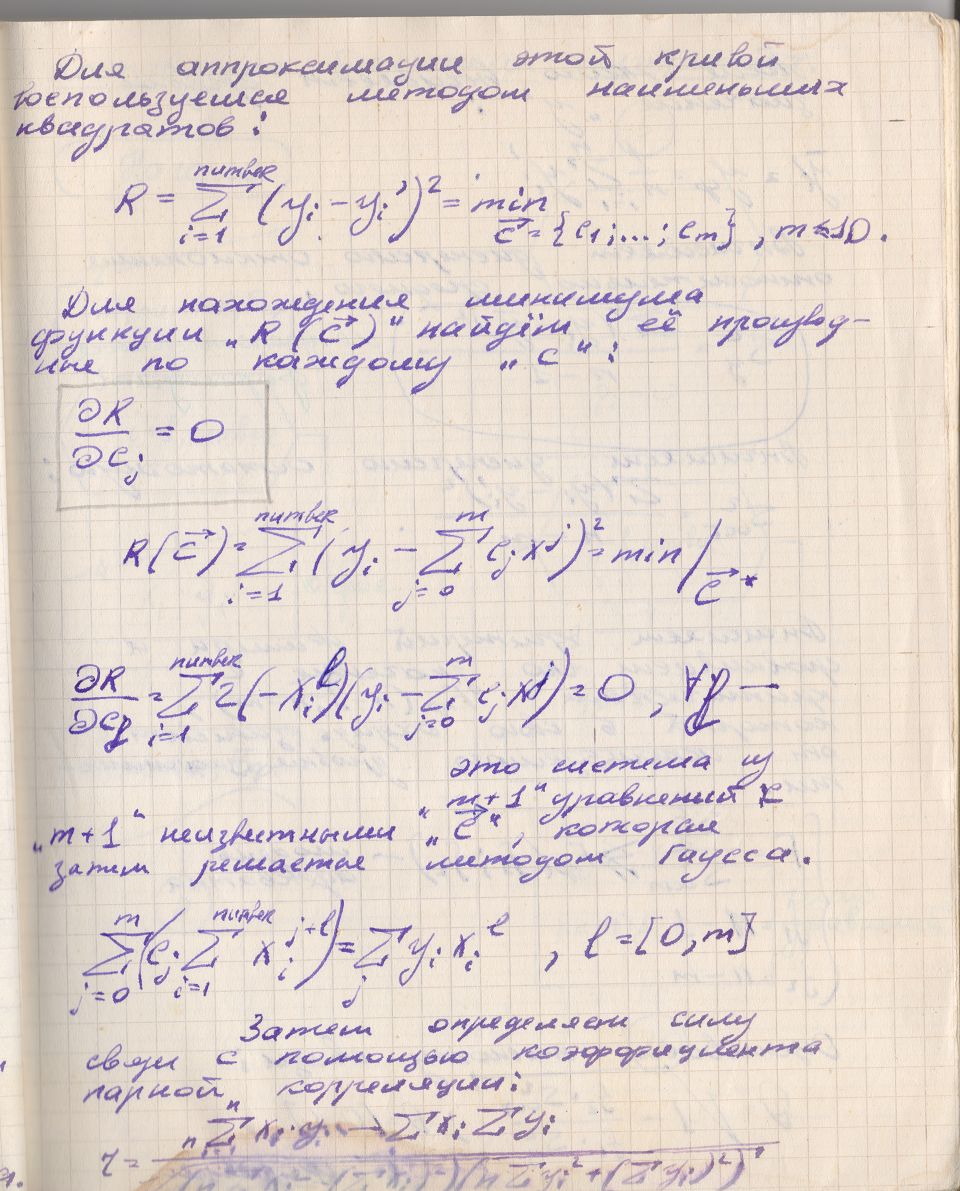 Для аппроксимации этой кривой
воспользуемся методом наименьших
квадратов:
R = \sum_{i=1}^{number} (y_i - y_i')^2 = min_{\vec{c} = {c_1;...;c_m}}, m ≤ 10.
Для нахождения минимума
функции „R(\vec{c})" найдём её производ-
ные по каждому „c":
∂R/∂c_j = 0
R(\vec{c}) = \sum_{i=1}^{number} (y_i - \sum_{j=0}^{m} c_j x^j)^2 = min |_{\vec{c}*}
∂R/∂c_l = \sum_{i=1}^{number} 2(-x_i^l)(y_i - \sum_{j=0}^{m} c_j x^j) = 0, ∀l —
это система из
„m+1" уравнений с
„m+1" неизвестными „\vec{c}", которая
затем решается методом Гаусса.
\sum_{j=0}^{m} (c_j \sum_{i=1}^{number} x_i^{j+l}) = \sum_j y_i x_i^l, l = [0,m]
Затем определяем силу
связи с помощью коэффициента
парной корреляции:
n \sum^n x_i y_i - \sum x_i \sum y_i
r =
(n \sum y_i^2 + (\sum y_i)^2)